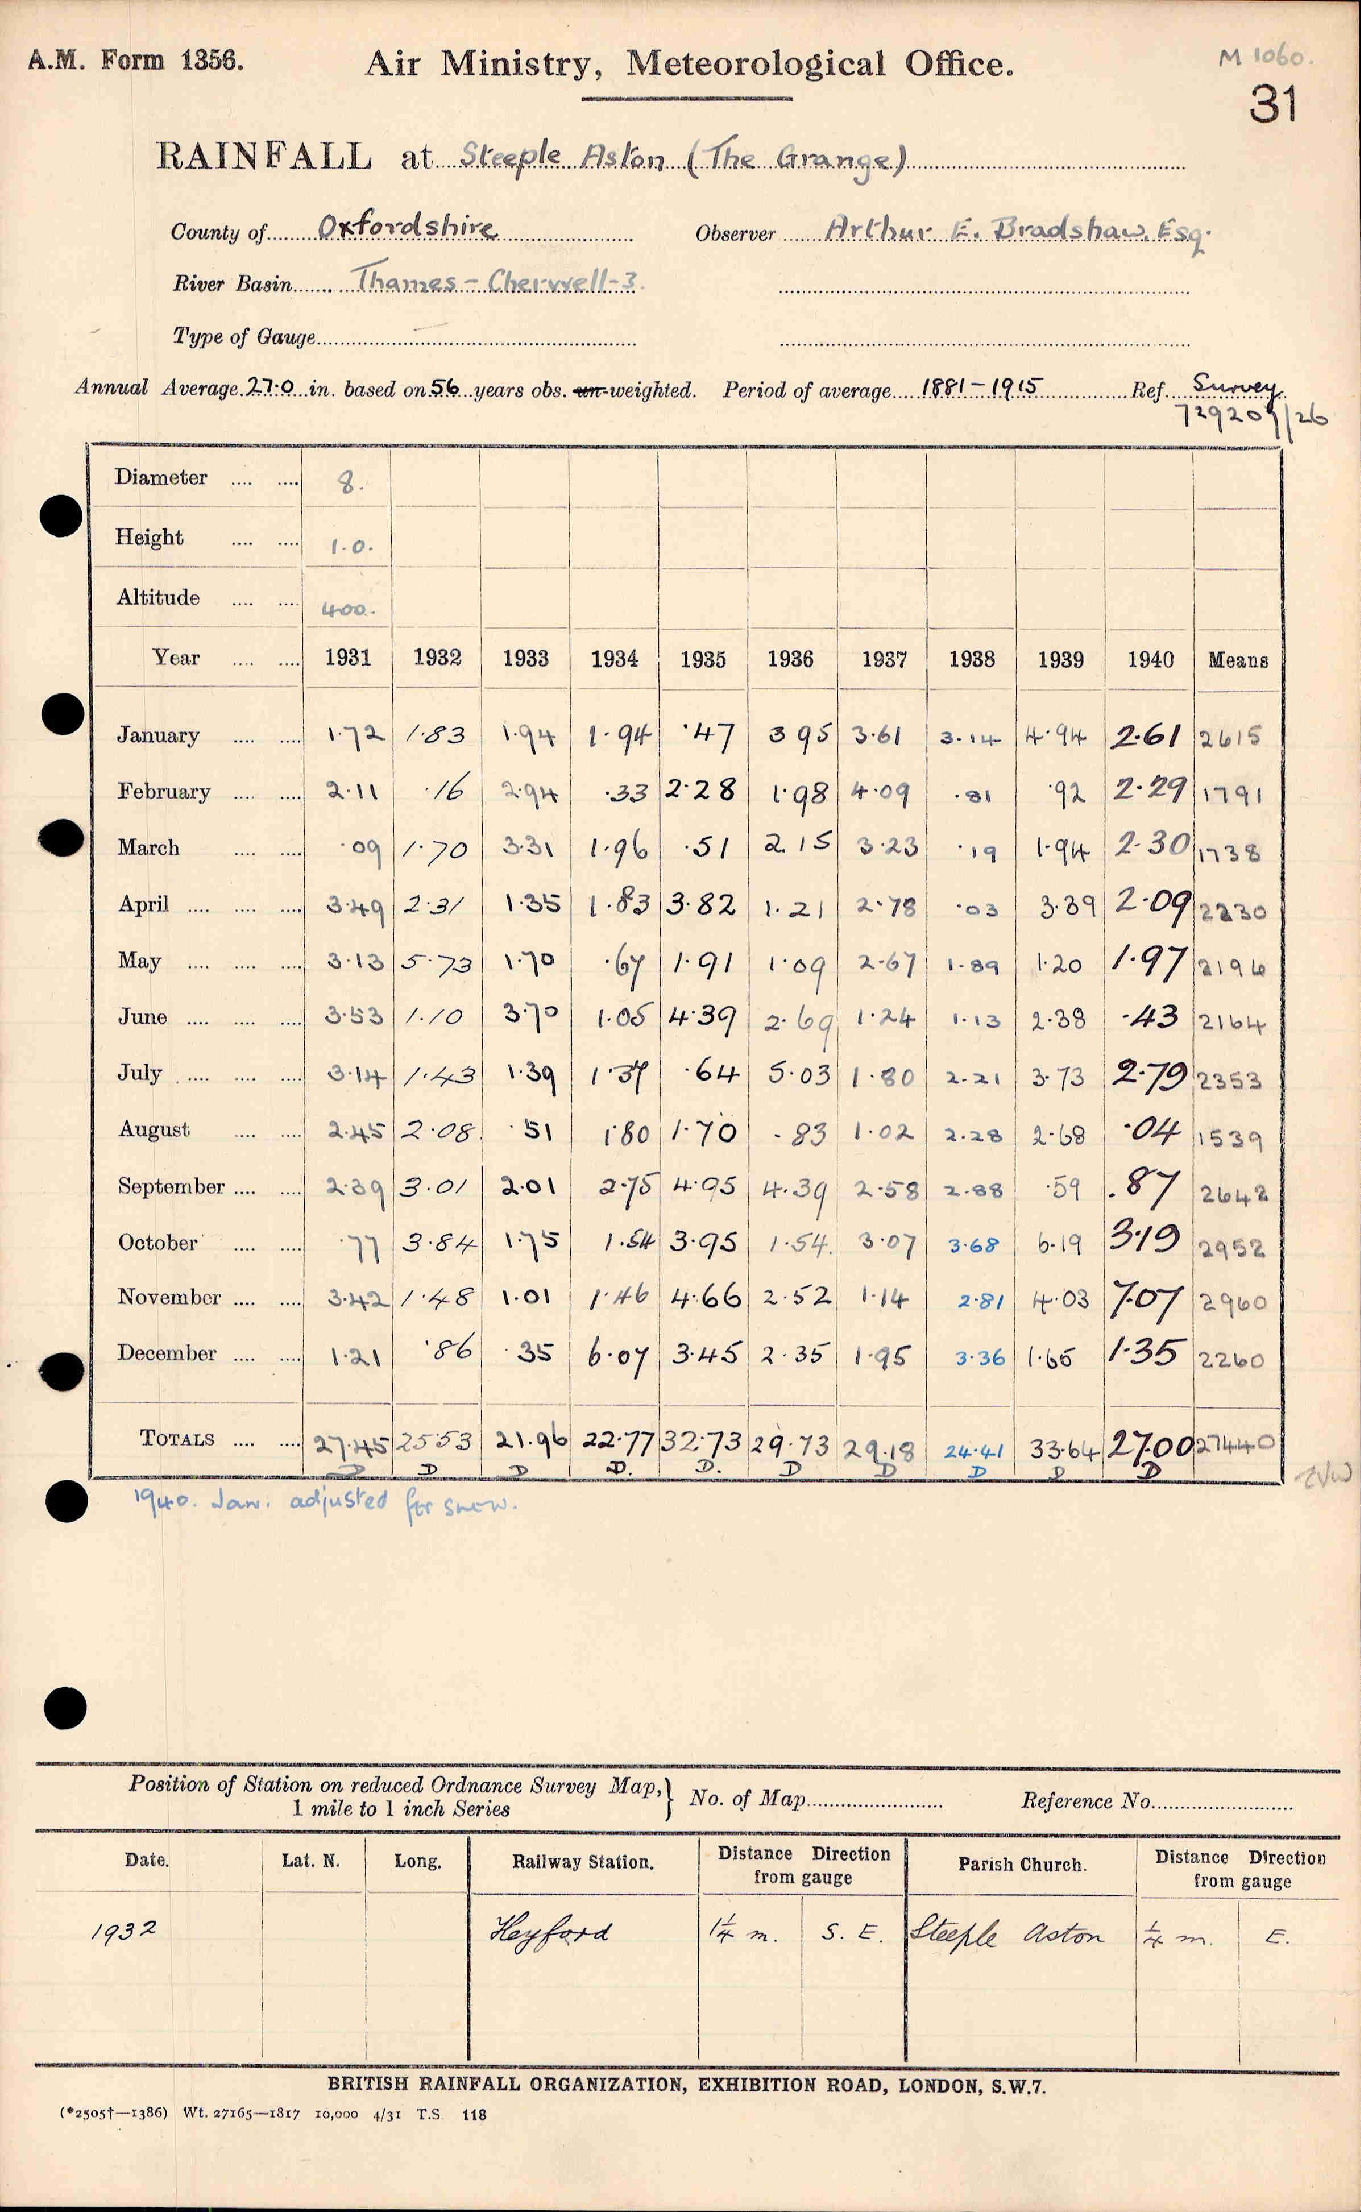 A.M. Form 1356.
Air Ministry, Meteorological Office.
M 1060.
31
RAINFALL at Steeple Aston (The Grange)
County of Oxfordshire Observer Arthur E. Bradshaw, Esq.
River Basin Thames - Cherwell-3.
Type of Gauge
Annual Average 27.0 in. based on 56 years obs. un-weighted. Period of average 1881-1915 Ref. Survey
729209/26
Diameter 8.
Height 1.0.
Altitude 400.
Year 1931 1932 1933 1934 1935 1936 1937 1938 1939 1940 Means
January 1.72 1.83 1.94 1.94 .47 3 95 3.61 3.14 4.94 2.61 2615
February 2.11 .16 2.94 .33 2.28 1.98 4.09 .81 .92 2.29 1791
March .09 1.70 3.31 1.96 .51 2.15 3.23 .19 1.94 2.30 1738
April 3.49 2.31 1.35 1.83 3.82 1.21 2.78 .03 3.39 2.09 2230
May 3.13 5.73 1.70 .67 1.91 1.09 2.67 1.89 1.20 1.97 2196
June 3.53 1.10 3.70 1.05 4.39 2.69 1.24 1.13 2.38 .43 2164
July 3.14 1.43 1.39 1.37 .64 5.03 1.80 2.21 3.73 2.79 2353
August 2.45 2.08 .51 1.80 1.70 .83 1.02 2.28 2.68 .04 1539
September 2.39 3.01 2.01 2.75 4.95 4.39 2.58 2.88 .59 .87 2642
October .77 3.84 1.75 1.54 3.95 1.54 3.07 3.68 6.19 3.19 2952
November 3.42 1.48 1.01 1.46 4.66 2.52 1.14 2.81 4.03 7.07 2960
December 1.21 .86 .35 6.07 3.45 2.35 1.95 3.36 1.65 1.35 2260
TOTALS 27.45 25.53 21.96 22.77 32.73 29.73 29.18 24.41 33.64 27.00 27440
D D D D. D. D D D D D
1940. Jan: adjusted for snow.
Position of Station on reduced Ordnance Survey Map,
1 mile to 1 inch Series
No. of Map Reference No.
Date. Lat. N. Long. Railway Station. Distance Direction from gauge Parish Church. Distance Direction from gauge
1932 Heyford 1¼ m. S. E. Steeple Aston ¼ m. E.
BRITISH RAINFALL ORGANIZATION, EXHIBITION ROAD, LONDON, S.W.7.
(*2505†—1386) Wt. 27165—1817 10,000 4/31 T.S. 118